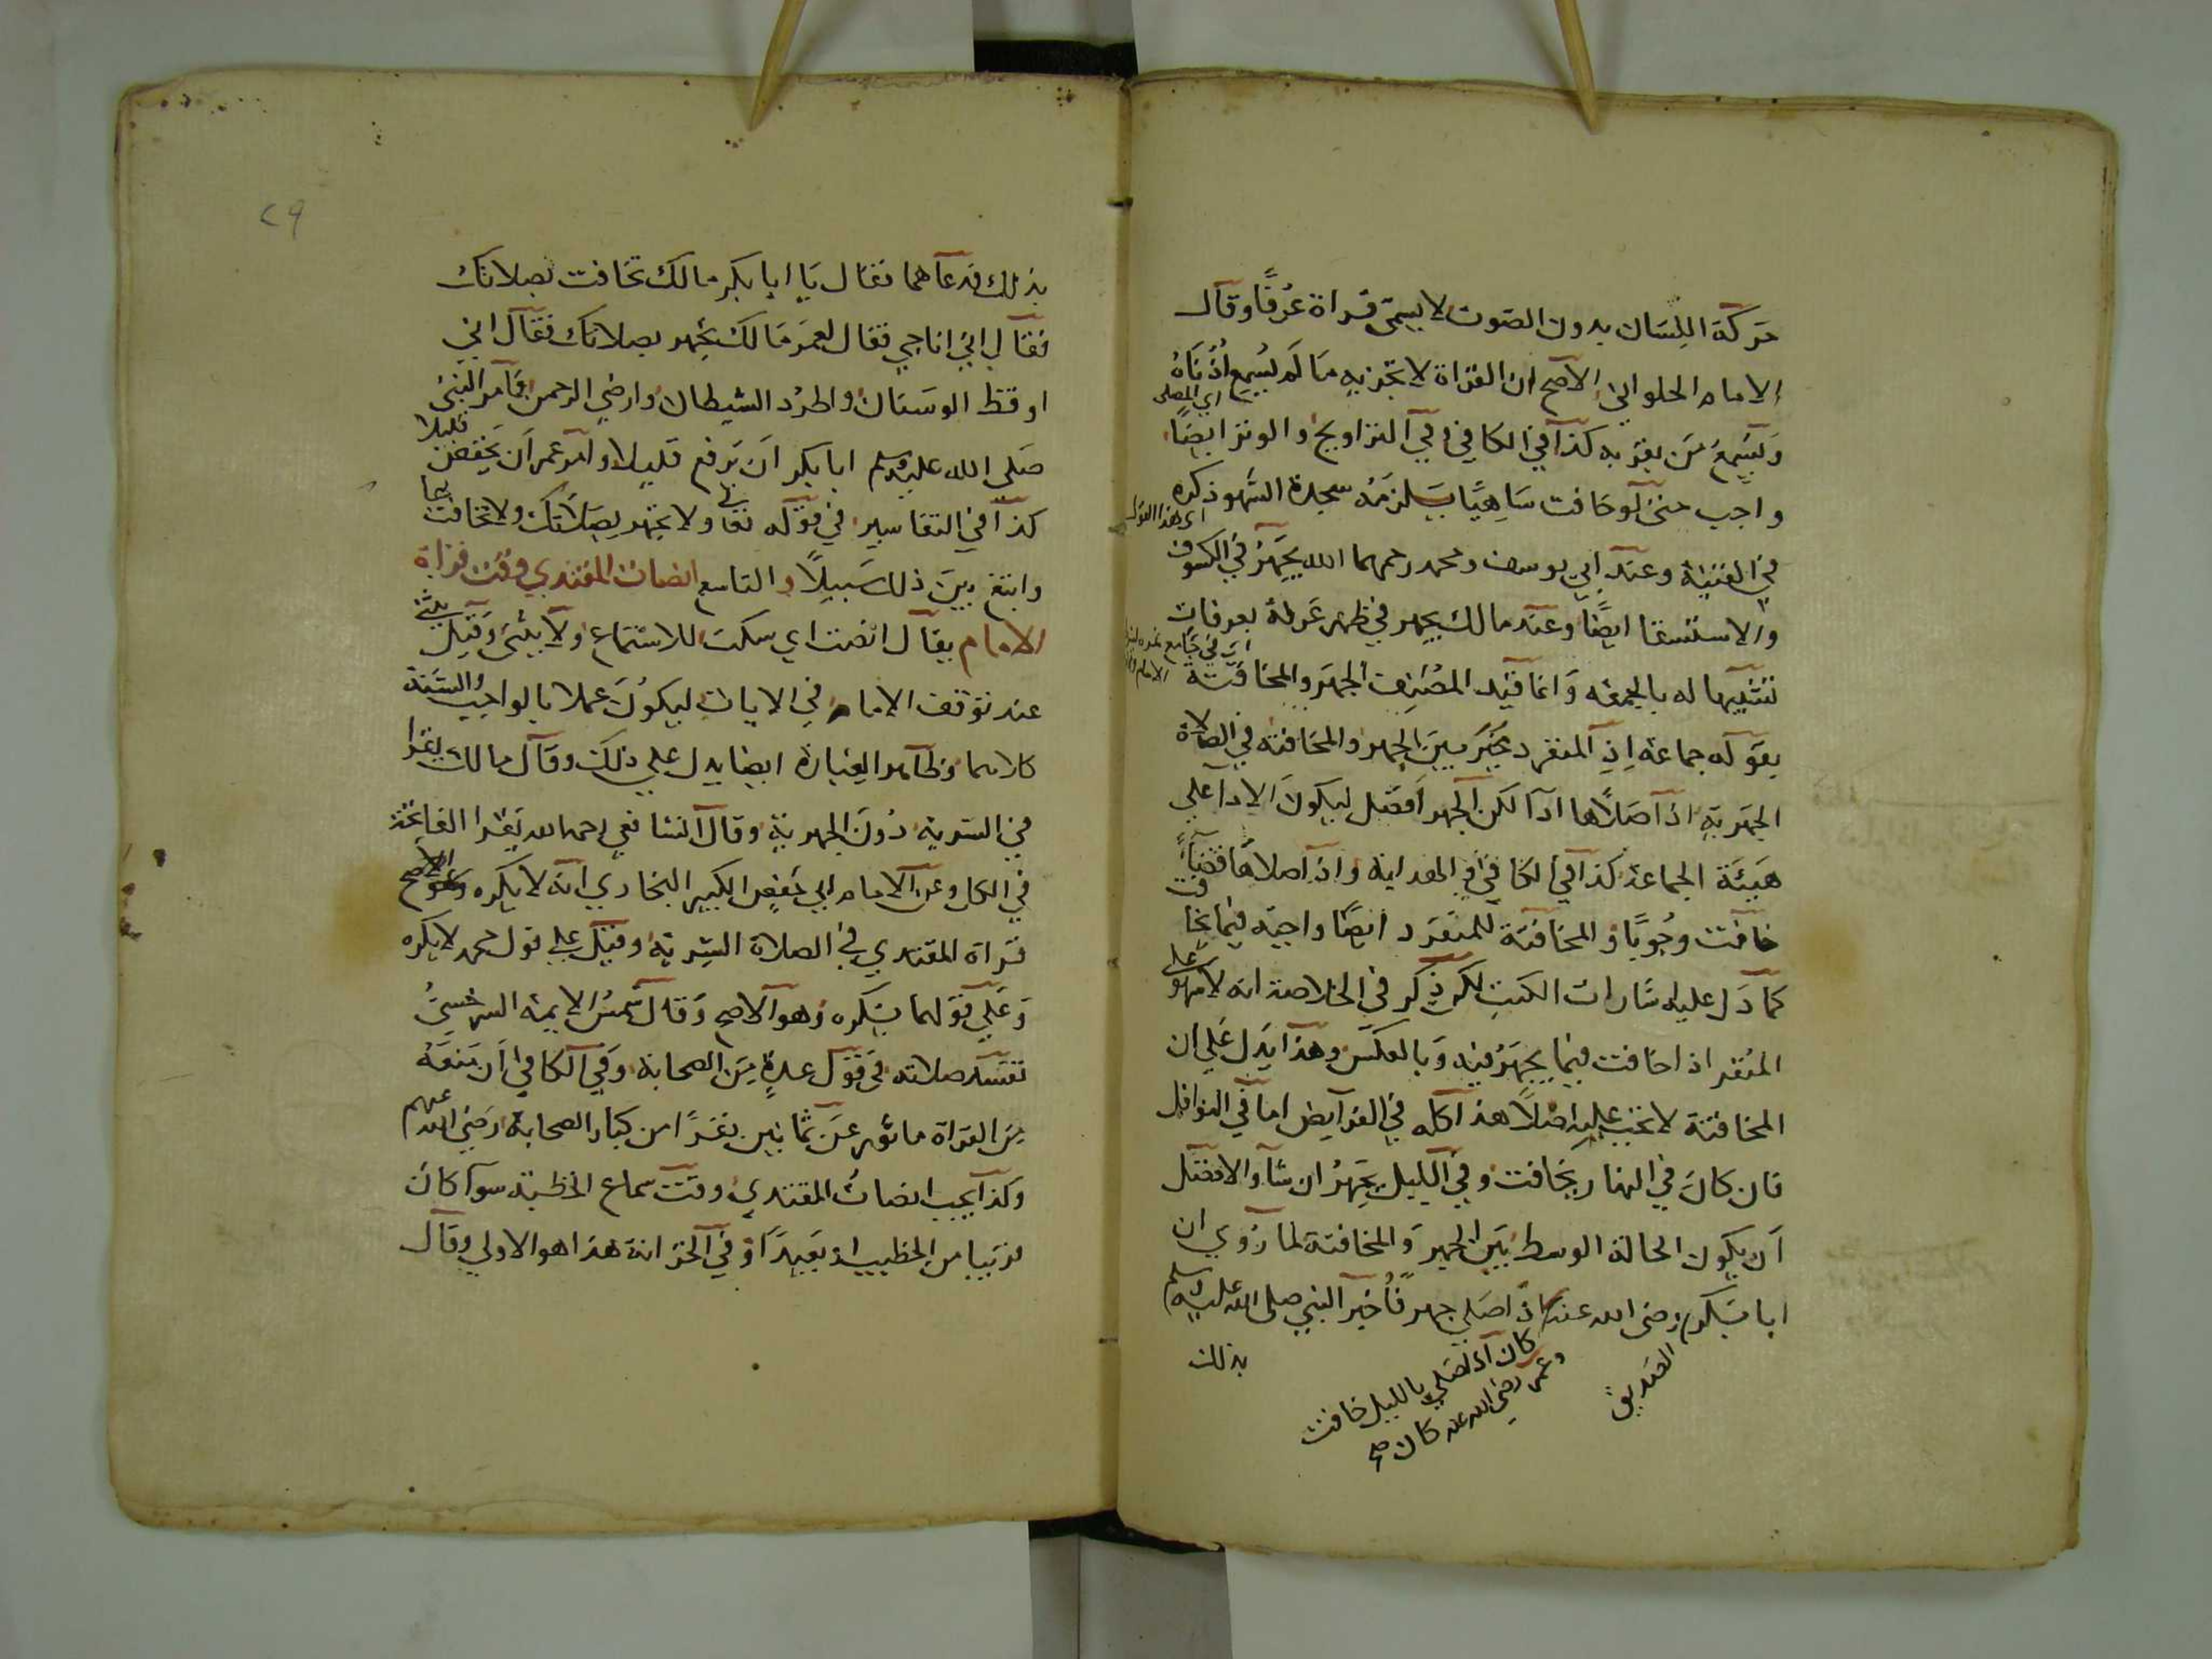 حركة اللسان بدون الصوت لا يسمى قراة عرفا وقال
الامام الحلواني الاصح ان القراة لا تجزيه ما لم يسمع اذناه
اي المصلي
ويسمع من بقربه كذا في الكافي وفي التراويح والوتر ايضا
واجب حتى لو خافت ساهيا يلزمه سجدة السهو ذكره
اي هذا القول
في القنية وعند ابي يوسف ومحمد رحمهما الله يجهر في الكسوف
والاستسقا ايضا وعند مالك يجهر في ظهر عرفة بعرفات
تشبيها له بالجمعة وانما قيد المصنف الجهر والمخافتة
بقوله جماعة اذ المنفرد يخير بين الجهر والمخافتة في الصلاة
الجهرية اذا صلاها ادآ لكن الجهر افضل ليكون الادآ على
هيئة الجماعة كذا في الكافي و الهداية واذا صلاها قضآء
خافت وجوبا والمخافتة للمنفرد ايضا واجبة فيما يخافت
كما دل عليه شارات الكتب لكن ذكر في الخلاصة انه لا سهو على
المنفرد اذا خافت فيما يجهر فيه وبالعكس وهذا يدل على ان
المخافتة لا تجب عليه اصلا هذا كله في الفرايض اما في النوافل
فان كان في النهار يخافت وفي الليل يجهر ان شآ والافضل
ان يكون الحالة الوسط بين الجهر والمخافتة لما روي ان
ابا بكر رضى الله عنه اذا صلى جهر فاخبر النبي صلى الله عليه وسلم
الصديق
كان اذا صلى بالليل خافت
وعمر رضى الله عنه كان صح
بذلك
٢٩
بذلك فدعاهما فقال يا ابا بكر مالك تخافت بصلاتك
فقال اني اناجي فقال لعمر مالك تجهر بصلاتك فقال اني
اوقظ الوسنان واطرد الشيطان وارضي الرحمن فامر النبى
صلى الله عليه وسلم ابا بكر ان يرفع قليلا وامر عمر ان يخفض قليلا
كذا في التفاسير في قوله تعالى ولا تجهر بصلاتك ولا تخافت بها
وابتغ بين ذلك سبيلا والتاسع انصات المقتدي وقت قراة
الامام يقال انصت اي سكت للاستماع ولا يثنى وقيل يثنى
عند توقف الامام في الايات ليكون عملا بالواجب والسنة
كلاهما وظاهر العبارة ايضا يدل على ذلك وقال مالك يقرا
في السرية دون الجهرية وقال الشافعي رحمه الله يقرا الفاتحة
في الكل وعن الامام ابي حفص الكبير البخاري انه لا يكره وهو الاصح
قراة المقتدي في الصلاة السرية وقيل على قول محمد لا يكره
وعلى قولهما يكره وهو الاصح وقال شمس الايمة السرخسي
تفسد صلاته في قول عدة من الصحابة وفي الكافي ان منعه
من القراة ماثور عن ثمانين نفرا من كبار الصحابة رضي الله عنهم
وكذا يجب انصات المقتدي وقت سماع الخطبة سوآ كان
قريبا من الخطيب او بعيدا وفي الخزانة هذا هو الاولى وقال